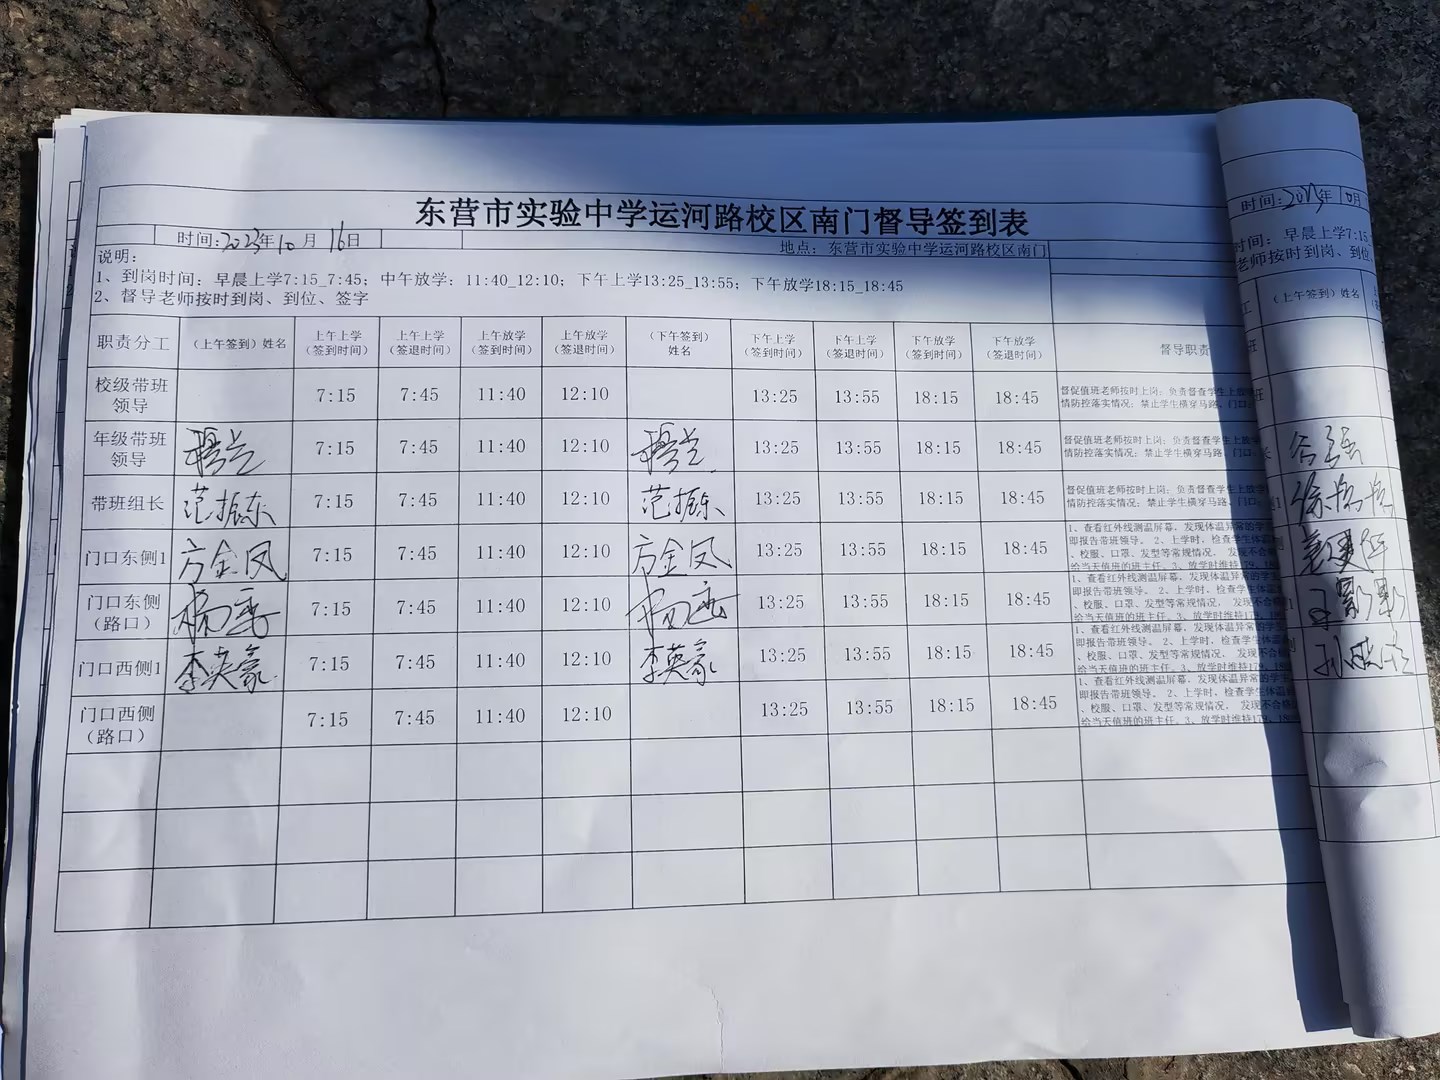 东营市实验中学运河路校区南门督导签到表
时间:2023年10月16日
地点：东营市实验中学运河路校区南门
说明：
1、到岗时间：早晨上学7:15_7:45；中午放学：11:40_12:10；下午上学13:25_13:55；下午放学18:15_18:45
2、督导老师按时到岗、到位、签字
职责分工 （上午签到）姓名 上午上学（签到时间） 上午上学（签退时间） 上午放学（签到时间） 上午放学（签退时间） （下午签到）姓名 下午上学（签到时间） 下午上学（签退时间） 下午放学（签到时间） 下午放学（签退时间） 督导职责
校级带班领导 7:15 7:45 11:40 12:10 13:25 13:55 18:15 18:45 督促值班老师按时上岗；负责督查学生上放
情防控落实情况；禁止学生横穿马路、门口
年级带班领导 7:15 7:45 11:40 12:10 13:25 13:55 18:15 18:45 督促值班老师按时上岗；负责督查学生上放
情防控落实情况；禁止学生横穿马路、门口
带班组长 范振东 7:15 7:45 11:40 12:10 范振东 13:25 13:55 18:15 18:45 督促值班老师按时上岗；负责督查学生上放
情防控落实情况；禁止学生横穿马路、门口
门口东侧1 方金凤 7:15 7:45 11:40 12:10 方金凤 13:25 13:55 18:15 18:45 1、查看红外线测温屏幕，发现体温异常的学生
即报告带班领导。 2、上学时，检查学生体温
、校服、口罩、发型等常规情况， 发现不合格
给当天值班的班主任。3、放学时维持179、
门口东侧（路口） 7:15 7:45 11:40 12:10 13:25 13:55 18:15 18:45 1、查看红外线测温屏幕，发现体温异常的学生
即报告带班领导。 2、上学时，检查学生体温
、校服、口罩、发型等常规情况， 发现不合格
给当天值班的班主任。3、放学时维持179、
门口西侧1 李英豪 7:15 7:45 11:40 12:10 李英豪 13:25 13:55 18:15 18:45 1、查看红外线测温屏幕，发现体温异常的学生
即报告带班领导。 2、上学时，检查学生体温
、校服、口罩、发型等常规情况， 发现不合格
给当天值班的班主任。3、放学时维持179、
门口西侧（路口） 7:15 7:45 11:40 12:10 13:25 13:55 18:15 18:45 1、查看红外线测温屏幕，发现体温异常的学生
即报告带班领导。 2、上学时，检查学生体温
、校服、口罩、发型等常规情况， 发现不合格
给当天值班的班主任。3、放学时维持179、
时间:2023年 月
时间：早晨上学7:15
老师按时到岗、到位
（上午签到）姓名